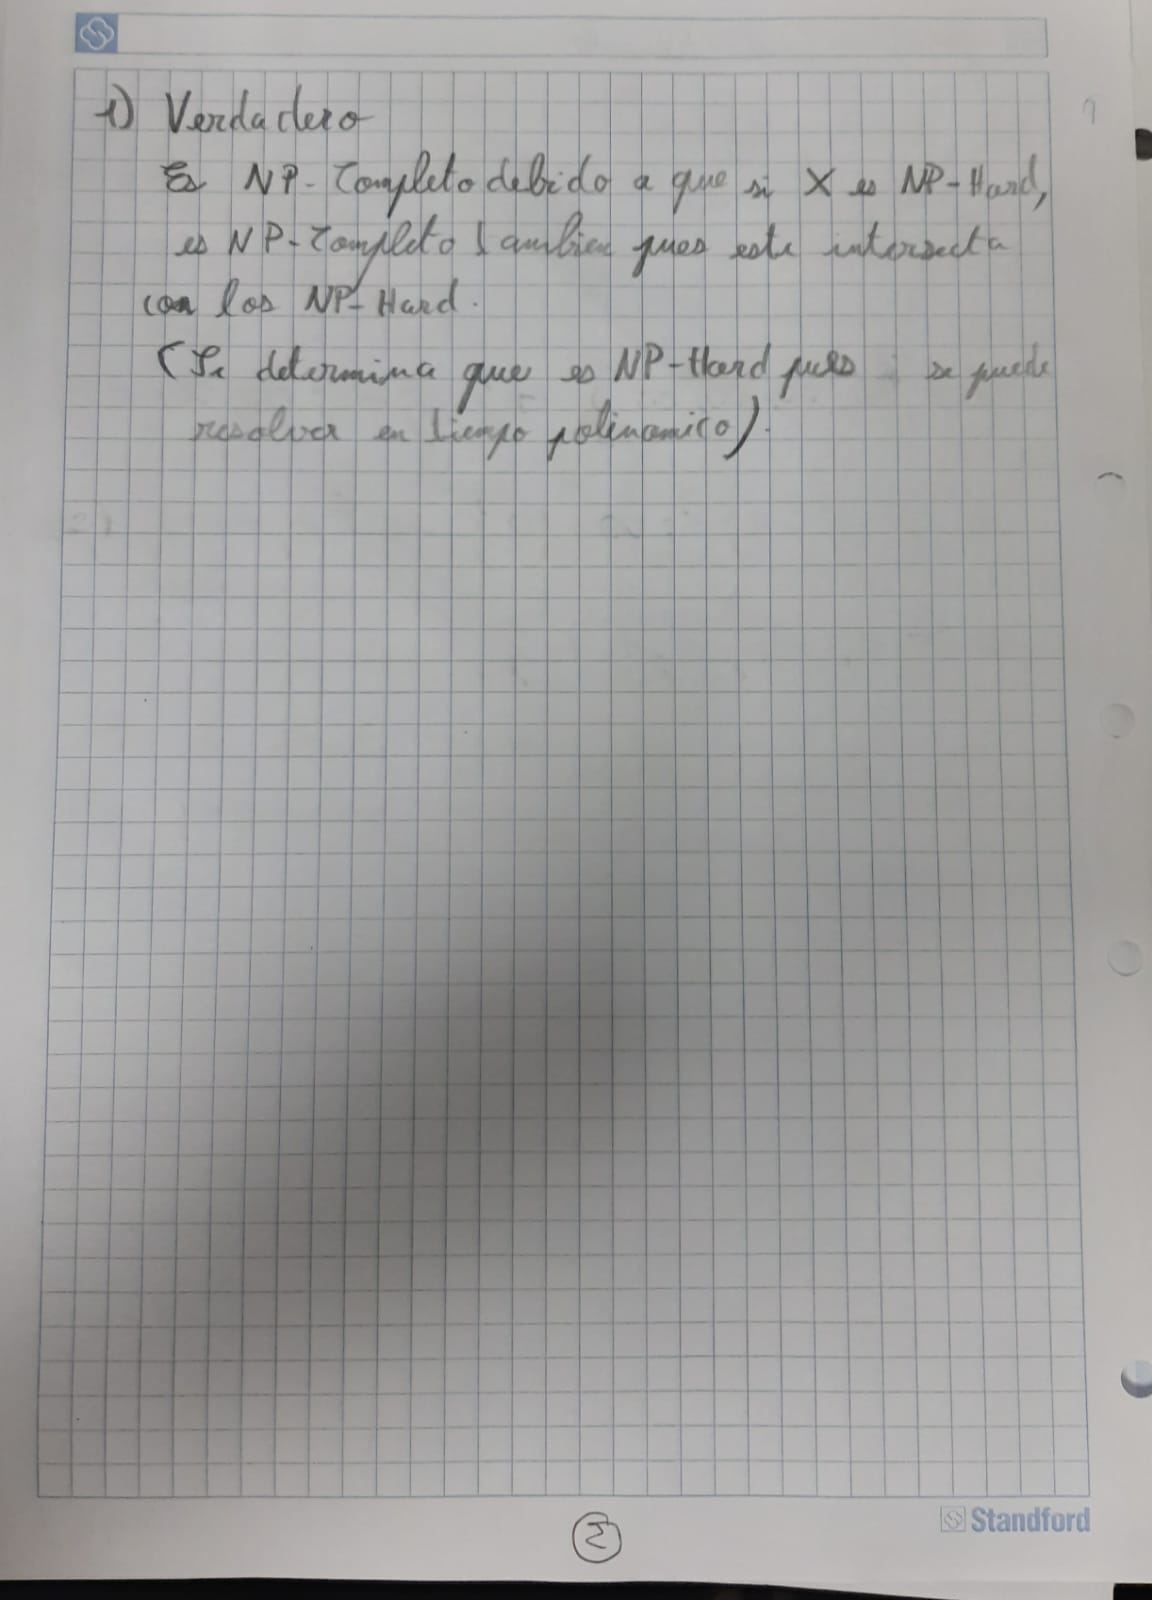 1) Verdadero
Es NP-Completo debido a que si X es NP-Hard,
es NP-Completo tambien pues este intersecta
con los NP-Hard.
(Se determina que es NP-Hard pues se puede
resolver en tiempo polinamico).
2
Standford